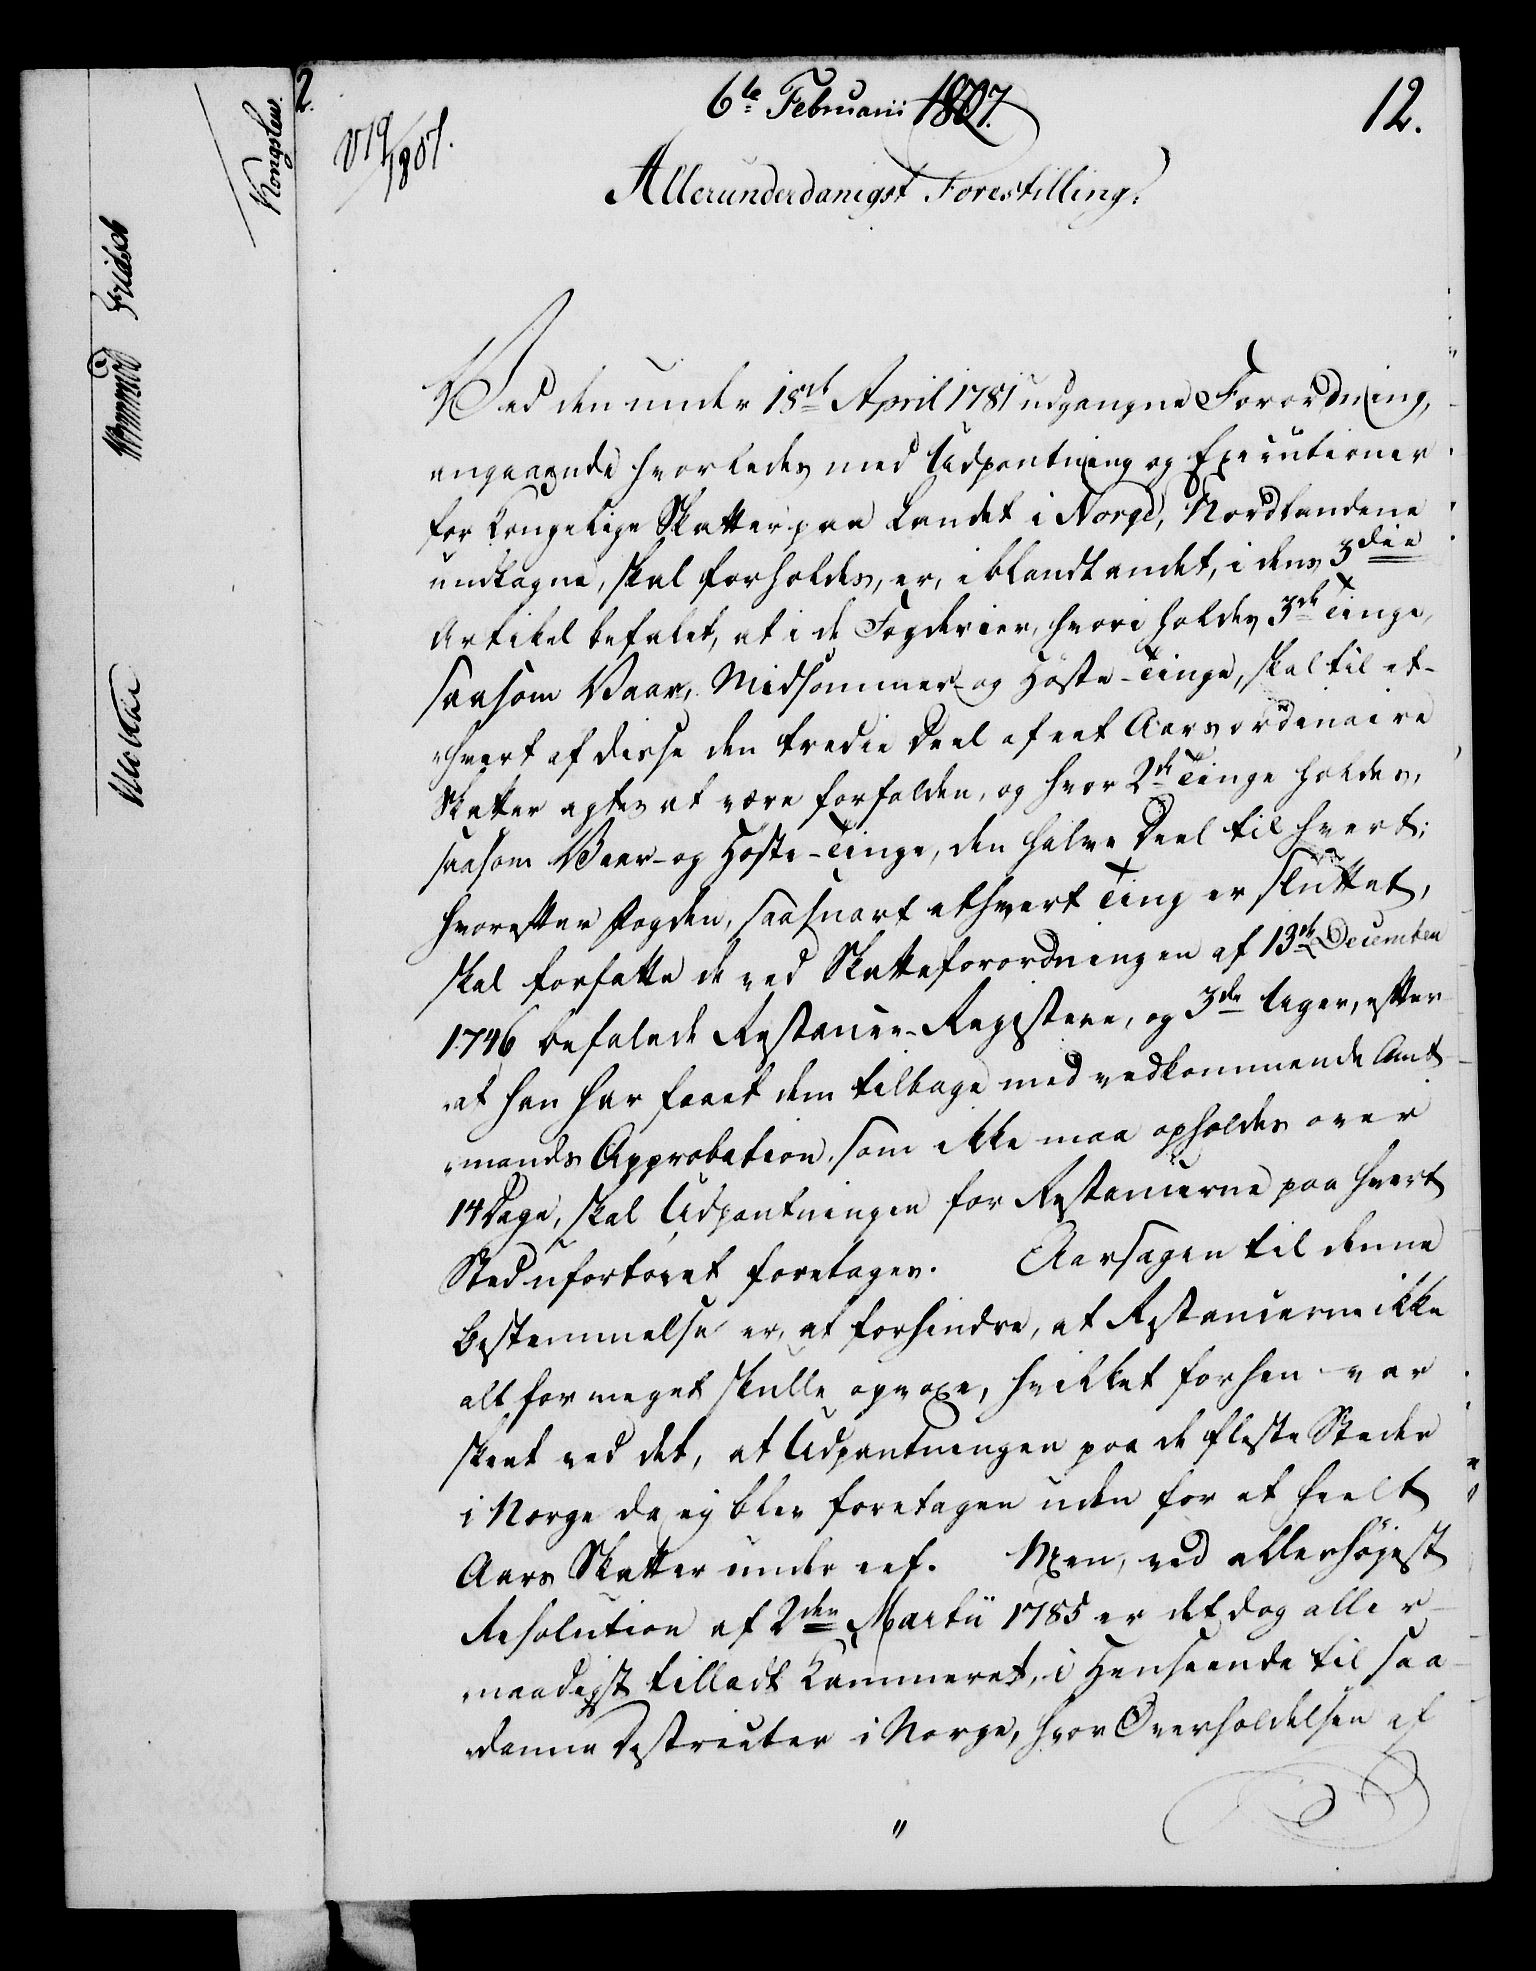 6te Februarii 1807.
12.
2.
V19/1807.
Kongslew.
Fridsch
Wormskiold
Moltke
Allerunderdanigst Forestilling.
Ved den under 18de April 1781 udgangne Forordning,
angaaende hvorledes med Udpantning og Executioner
for Kongelige Skatter paa Landet i Norge, Nordlandene
undtagne, skal forholdes, er, iblandt andet, i dens 3die
Artikel befalet, at i de Fogderier, hvori holdes 3de Tinge,
saasom Vaar, Midsommer- og Høste-Tinge, skal til et-
hvert af disse den tredie Deel af eet Aars ordinaire
Skatter agtes at være forfalden, og hvor 2de Tinge holdes,
saasom Vaar- og Høste-Tinge, den halve Deel til hvert;
hvorefter Fogden, saasnart ethvert Ting er sluttet,
skal forfatte de ved Skatteforordningen af 13de December
1746 befalede Restance-Registere, og 3de Uger, efter
at han har faaet dem tilbage med vedkommende Amt-
mands Approbation, som ikke maa opholdes over
14 Dage, skal Udpantningen for Restancerne paa hvert
Sted ufortøvet foretages. Aarsagen til denne
Bestemmelse er, at forhindre, at Restancerne ikke
alt for meget skulle opvoxe, hvilket forhen var
skeet ved det, at Udpantningen paa de fleste Steder
i Norge da ej blev foretagen uden for et heelt
Aars Skatter under eet. Men, ved allerhøjest
Resolution af 2den Martii 1785 er det dog aller-
naadigst tilladt Kammeret, i Henseende til saa-
danne Districter i Norge, hvor Overholdelsen af